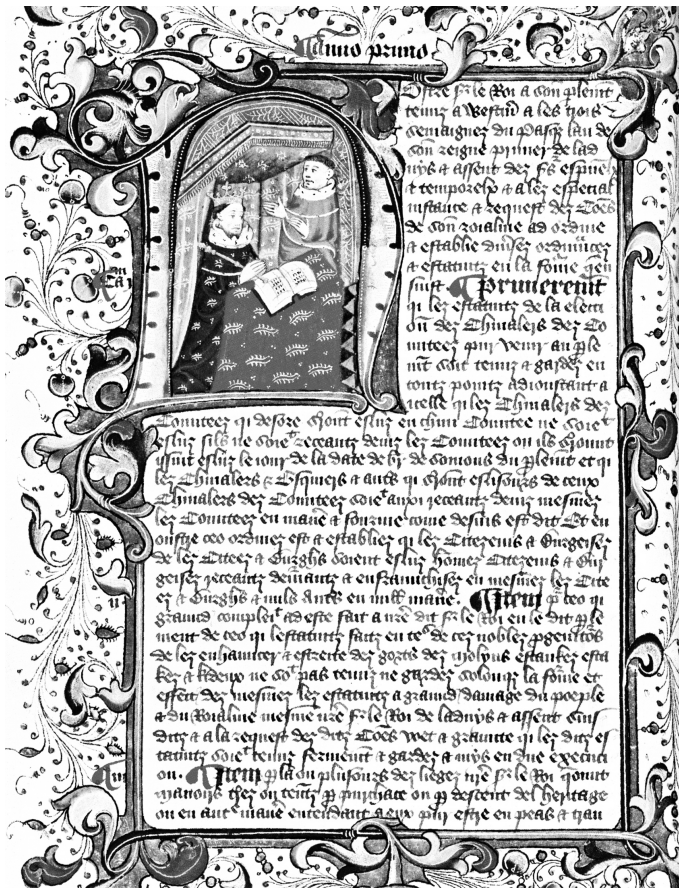 Anno primo
Nostre sr le Roi a son pleint
tenuz a Westm a les trois
semaignez du Pasqe lan de
son reigne primer de lad
uys & assent dez srs espuelx
& temporelx & a lez especial
instance & request dez Coes
de son roialme ad ordine
& establie diusez ordinancez
& estatutz en la forme qen
suist Primerement
qi lez estatutz de la electi
on dez Chiualers dez Co
unteez pur venir au ple
ment soit tenuz & gardez en
toutz pointz adioustant a
icelle qi lez Chiualers dez
Counteez qi desore eslutz en chun Countee ne soiet
esluz sils ne soiet receantz deinz lez Counteez ou ils
issint esluz le iour de la date de br de somons du pleint et qi
lez Chiualers & Esquiers & autrs qi eslisours de ceux
Chiualers dez Counteez soiet auxi receantz deinz mesmez
lez Counteez en maner & fourme come desuis est dit Et en
oustre ceo ordinez est & establiez qi lez Citezeins & Burgeisez
de lez Citeez & Burghs soient esluz homez Citezeins & Bur
geisez receantz demurantz & enfraunchisez en mesmez lez Cite
ez & Burghs & nuls autrs en null maner. Item p ceo qi
graund compleit ad este fait a nre dit sr le Roi en le dit ple
ment de ceo qi lestatutz faitz en temps de cez noblez pgenitors
de lez enhauncer & estreite dez gortz dez molyns estankez esta
kez & kideux ne sot pas tenuz ne gardez solonqe la forme et
effect dez mesmez lez estatutz a graund damage du poeple
& du Roialme mesme nre sr le Roi de laduys & assent suis
ditz & a la request dez ditz Coes voet & graunte qi lez ditz es
tatutz soiet tenuz ferment & gardez & mys en due execuci
on. Item p la ou plusours dez liegez nre sr le Roi
manoirs terr ou tentz p purchace ou p descent del heritage
ou en autr maner entendant a eux pur estre en peas & trau